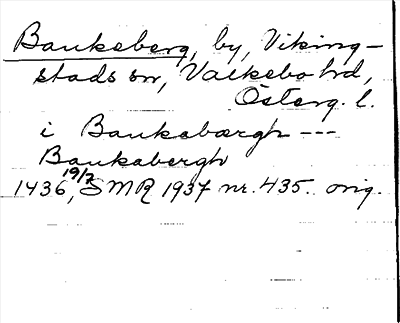 Bankeberg, by, Viking-
stads sn, Valkebo hd,
Österg. l.
i Bankabærgh ---
Bankabergh
1436 19/7, SMR 1937 nr. 435. orig.